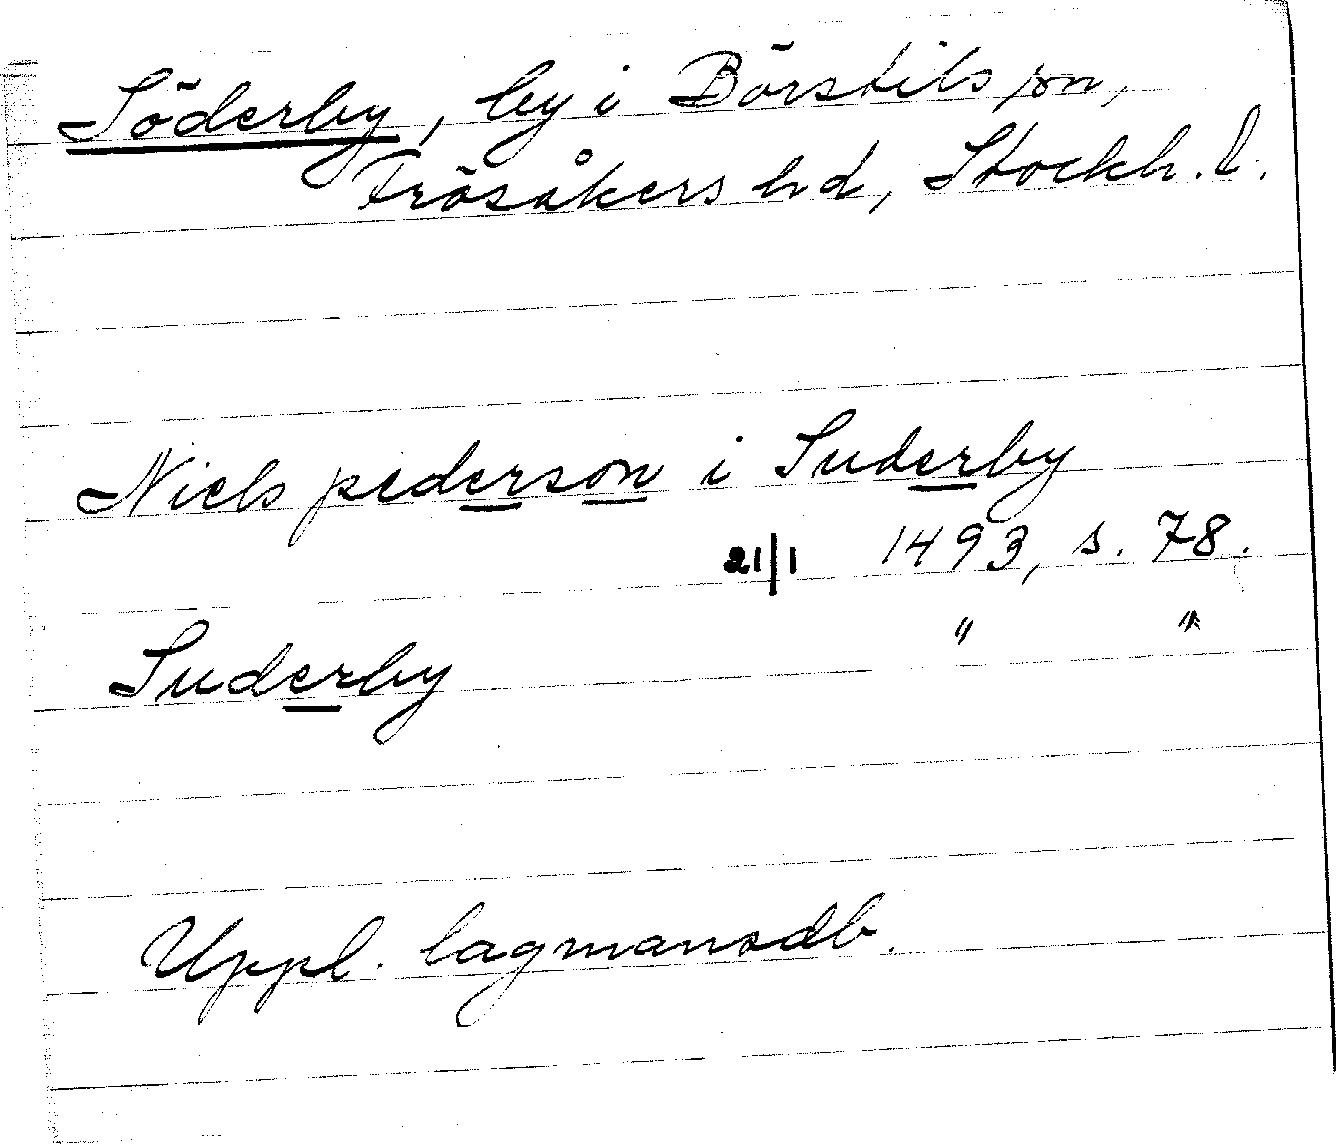 Söderby, by i Börstils sn,
Frösåkers hd, Stockh. l.
Niels pederson i Suderby
21/1 1493, s. 78.
Suderby " "
Uppl. lagmansdb.